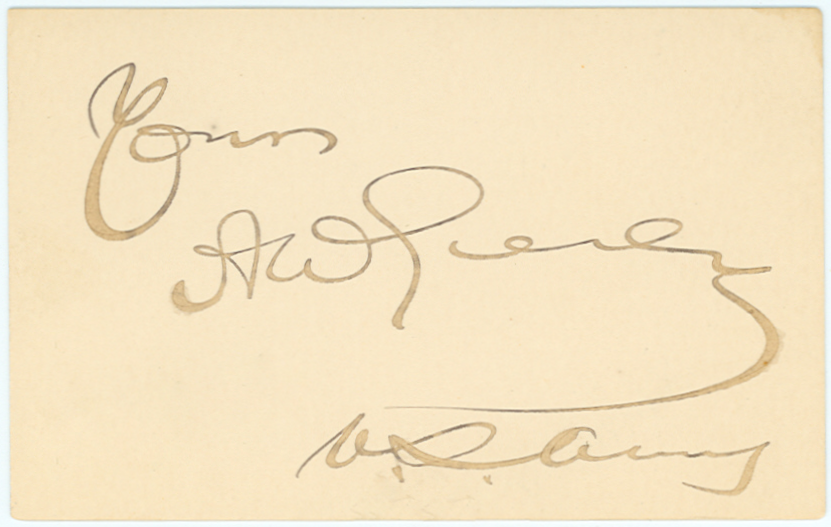 Yours
A W Greely
U.S. Army